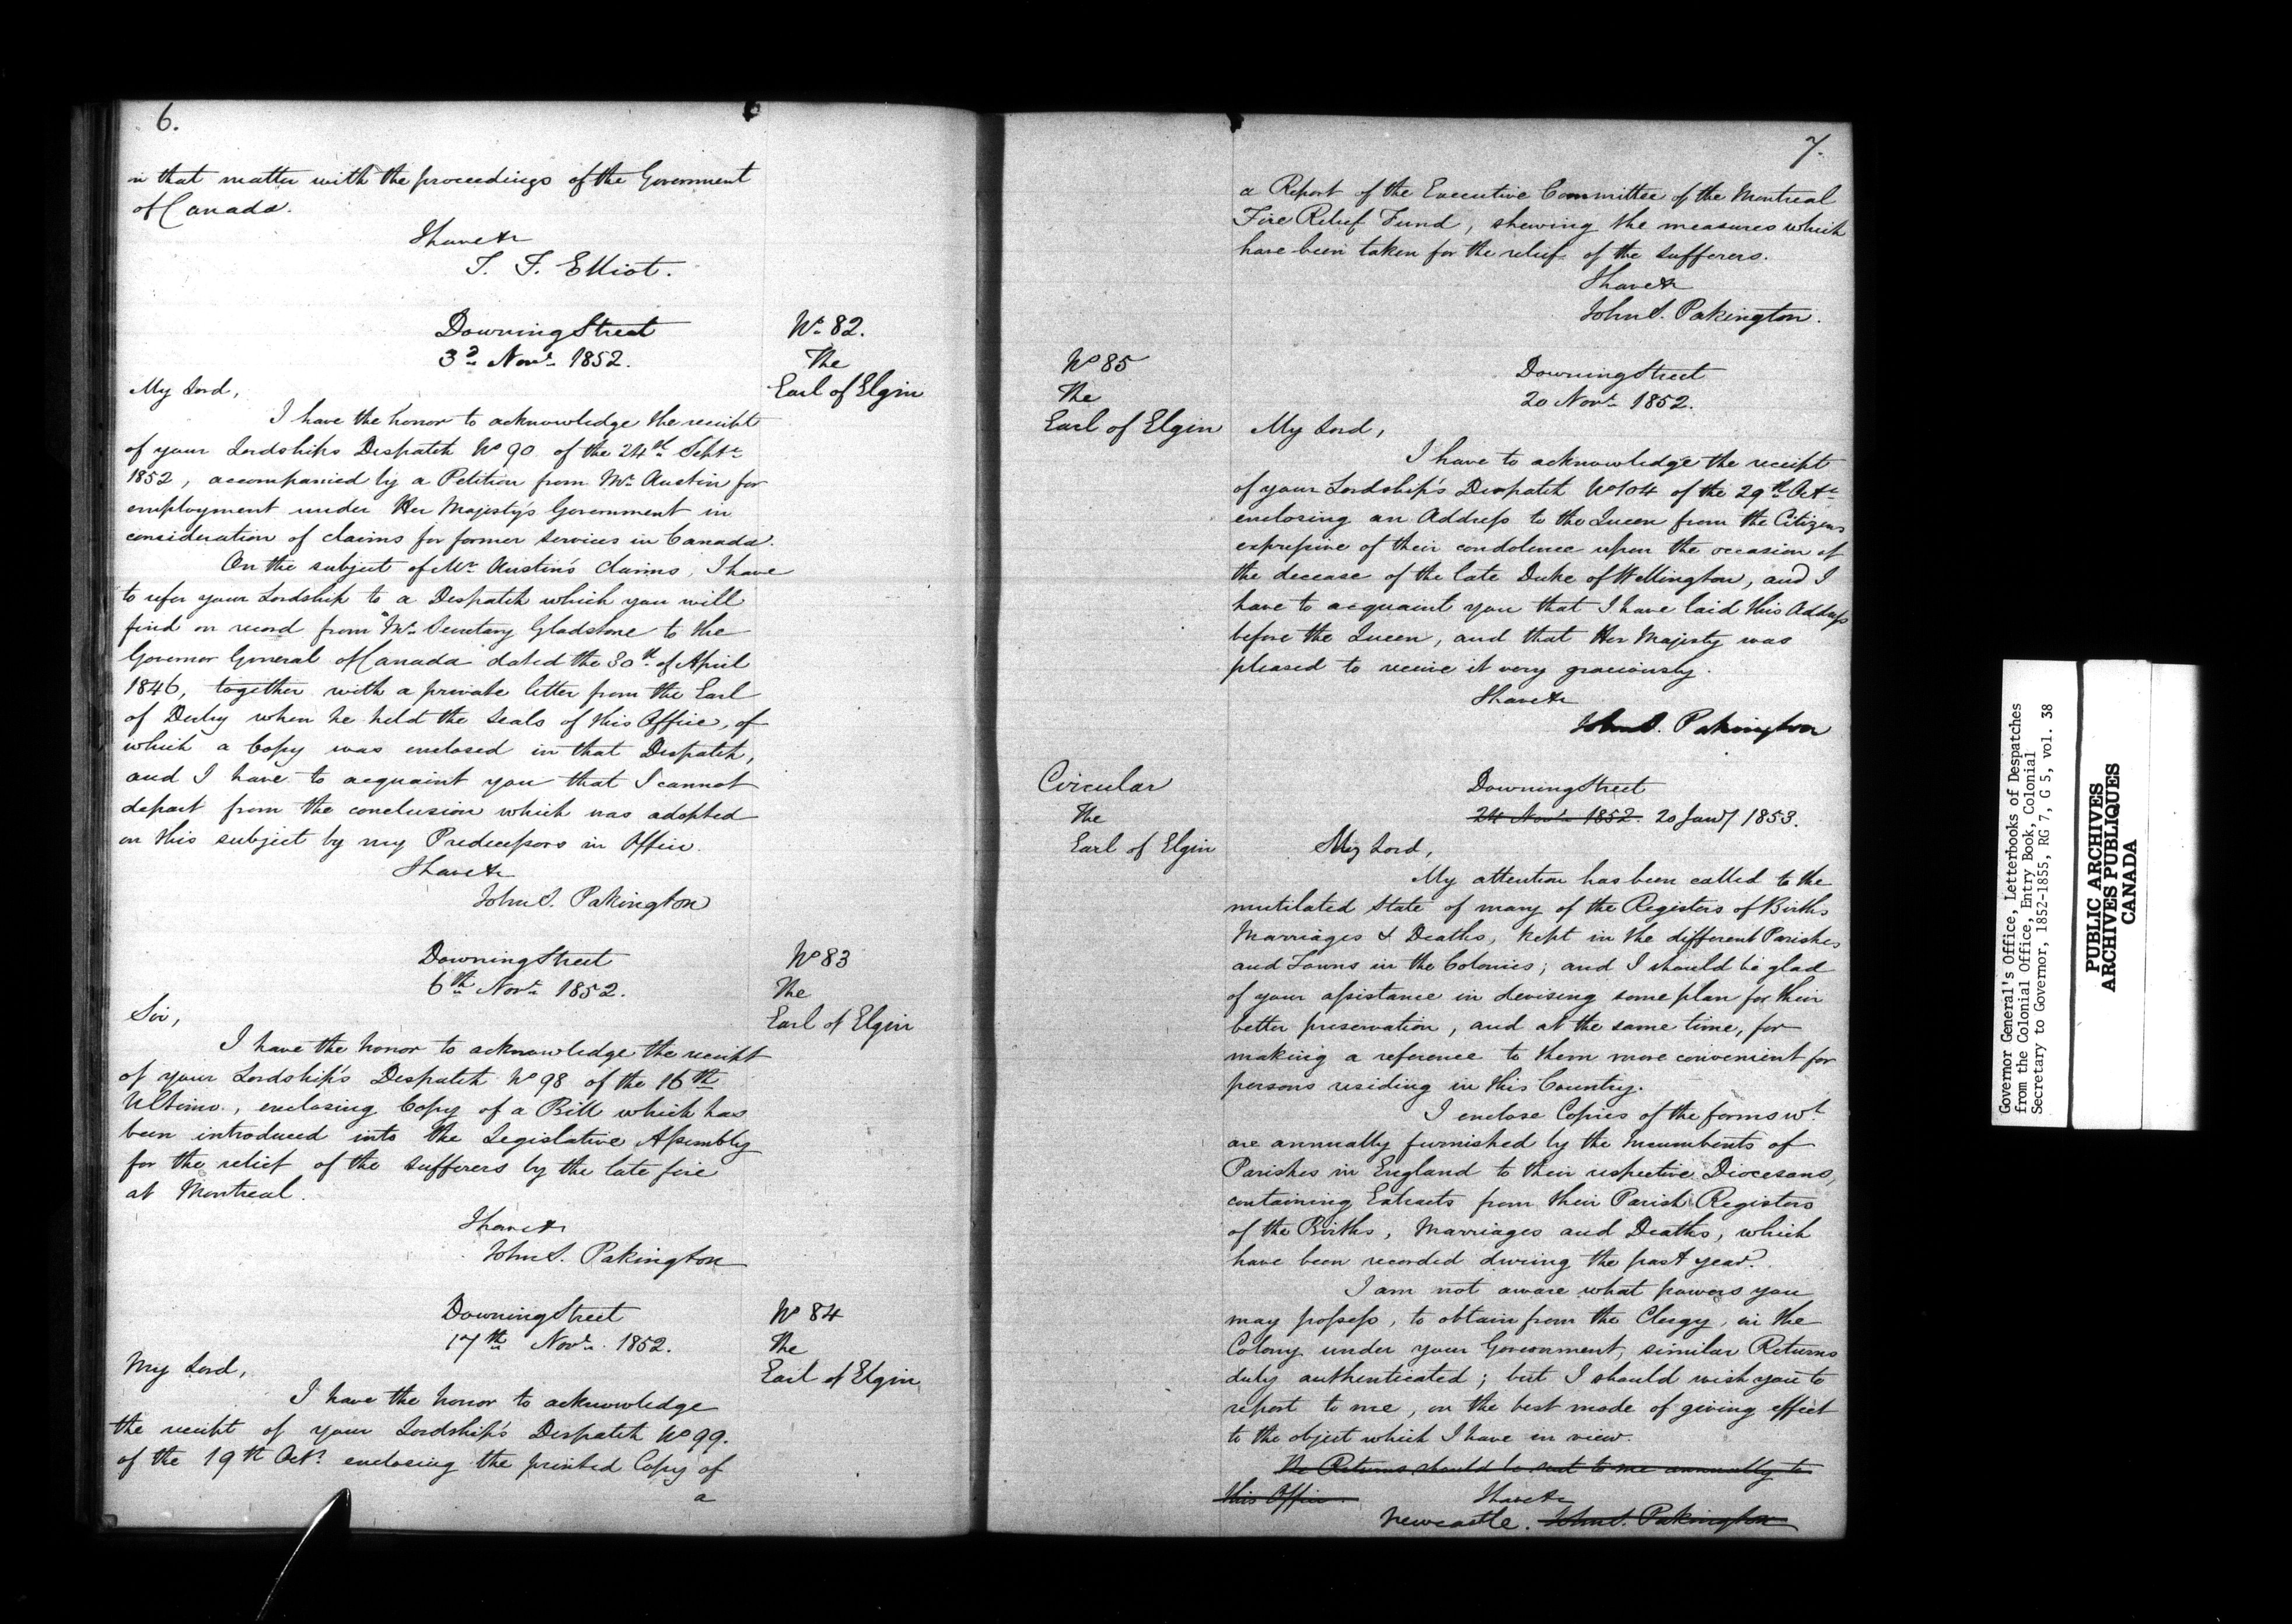 6.
in that matter with the proceedings of the Government
of Canada.
I have &c
T. F. Elliot.
Downing Street
3d Novr 1852.
No 82.
The
Earl of Elgin
My Lord,
I have the honor to acknowledge the receipt
of your Lordship's Despatch No 90 of the 24th Septr
1852, accompanied by a Petition from Mr Austin for
employment under Her Majesty's Government in
consideration of claims for former services in Canada.
On the subject of Mr Austin's claims, I have
to refer your Lordship to a Despatch which you will
find on record from Mr Secretary Gladstone to the
Governor General of Canada dated the 30th of April
1846, together with a private letter from the Earl
of Derby when he held the Seals of this Office, of
which a Copy was enclosed in that Despatch,
and I have to acquaint you that I cannot
depart from the conclusion which was adopted
on this subject by my Predecessors in Office.
I have &c
John S. Pakington
Downing Street
6th Novr 1852.
No 83
The
Earl of Elgin
Sir,
I have the honor to acknowledge the receipt
of your Lordship's Despatch No 98 of the 16th
Ultimo, enclosing Copy of a Bill which has
been introduced into the Legislative Assembly
for the relief of the sufferers by the late fire
at Montreal.
I have &c
John S. Pakington
Downing Street
17th Novr 1852.
No 84
The
Earl of Elgin
My Lord,
I have the honor to acknowledge
the receipt of your Lordship's Despatch No 99.
of the 19th Octr enclosing the printed Copy of
a
7.
a Report of the Executive Committee of the Montreal
Fire Relief Fund, shewing the measures which
have been taken for the relief of the sufferers.
I have &c
John S. Pakington.
No 85
The
Earl of Elgin
Downing Street
20 Novr 1852.
My Lord,
I have to acknowledge the receipt
of your Lordship's Despatch No 104 of the 29th Octr
enclosing an Address to the Queen from the Citizens
expressive of their condolence upon the occasion of
the decease of the late Duke of Wellington, and I
have to acquaint you that I have laid this Address
before the Queen, and that Her Majesty was
pleased to receive it very graciously.
I have &c
John S. Pakington
Circular
The
Earl of Elgin
Downing Street
24 Novr 1852. 20 Jany 1853.
My Lord,
My attention has been called to the
mutilated State of many of the Registers of Births
Marriages & Deaths, kept in the different Parishes
and Towns in the Colonies; and I should be glad
of your assistance in devising some plan for their
better preservation, and at the same time, for
making a reference to them more convenient for
persons residing in this Country.
I enclose Copies of the forms wh
are annually furnished by the Incumbents of
Parishes in England to their respective Diocesans,
containing Extracts from their Parish Registers
of the Births, Marriages and Deaths, which
have been recorded during the past year.
I am not aware what powers you
may possess, to obtain from the Clergy, in the
Colony under your Government, similar Returns
duly authenticated; but I should wish you to
report to me, on the best mode of giving effect
to the object which I have in view.
The Returns should be sent to me annually to
this Office.
I have &c
Newcastle. John S. Pakington
Governor General's Office, Letterbooks of Despatches
from the Colonial Office, Entry Book, Colonial
Secretary to Governor, 1852-1855, RG 7, G 5, vol. 38
PUBLIC ARCHIVES
ARCHIVES PUBLIQUES
CANADA